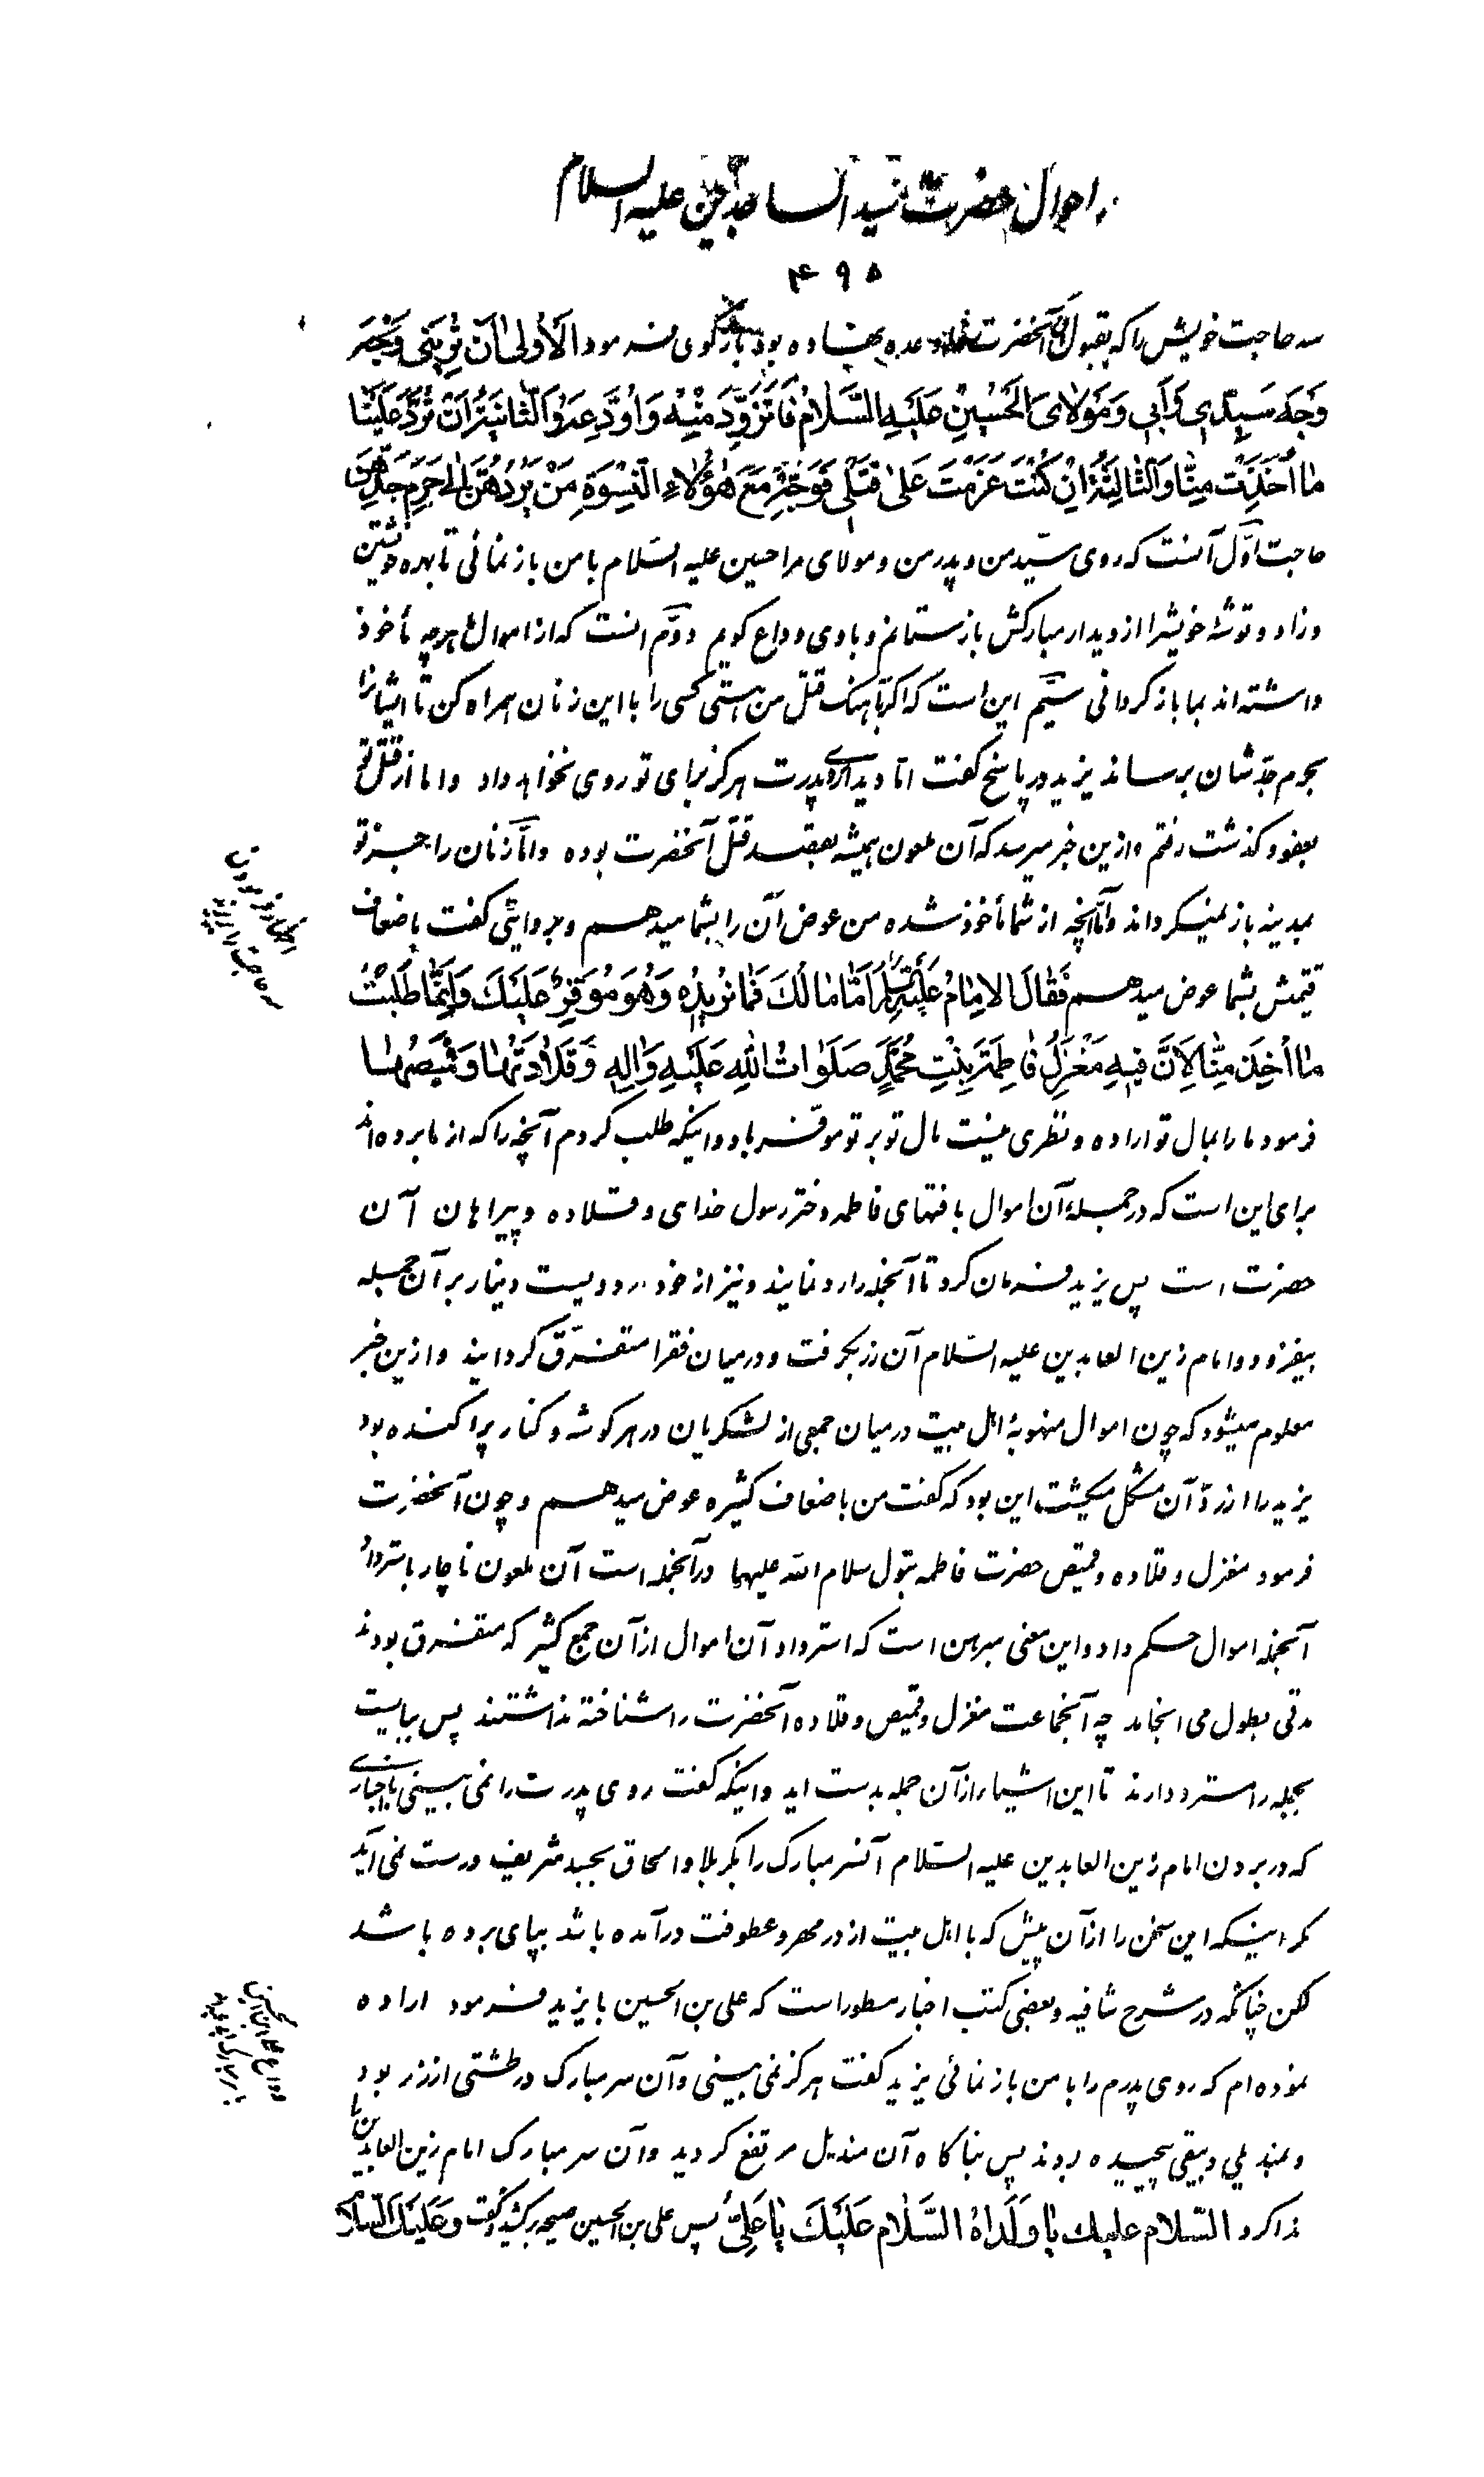 احوال حضرت سید الساجدین علیه السلام
۴۹۵
سه حاجت خویش را که بقبول آنحضرت وعده نهاده بود بازگوی فرمود الاُولىٰ اَن تُرِیَنی وَجْهَ
وَجهَ سَیِّدی وَاَبی وَمَوْلایَ الحُسَیْنِ عَلَیْهِ السَّلامُ فَاَتَزَوَّدَ مِنْهُ وَاُوَدِّعَهُ وَالثّانیَةُ اَنْ تَرُدَّ عَلَیْنا
ما اُخِذَتْ مِنّا وَالثّالِثَةُ اِنْ کُنْتَ عَزَمْتَ عَلیٰ قَتْلی فَوَجِّهْ مَعَ هٰؤُلاءِ النِّسْوَةِ مَنْ یَرُدُّهُنَّ اِلیٰ حَرَمِ جَدِّهِنَّ
حاجت اوّل آنست که روی سیّد من و پدر من و مولای مرا حسین علیه السّلام با من بازنمائی تا بهره خویشتن
و زاد و توشه خویش را از دیدار مبارکش بازستانم و با وی وداع گویم دوّم انست که از اموال ما هرچه مأخوذ
داشته‌اند بما باز گردانی سیّم این است که اگر بآهنگ قتل من هستی کسی را با این زنان همراه کن تا ایشانرا
بحرم جدّشان برساند یزید در پاسخ گفت امّا دیدار پدرت هرگز برای تو روی نخواهد داد و اما از قتل تو
بعفو و گذشت رفتم و ازین خبر میرسد که آن ملعون همیشه بعقد قتل آنحضرت بوده و امّا زنان را جز تو
بمدینه باز نمیگرداند و امّا آنچه از شما مأخوذ شده من عوض آن را بشما میدهم و بروایتی گفت باضعاف
قیمتش بشما عوض میدهم فَقالَ الاِمامُ عَلَیْهِ السَّلامُ اَمّا مالُکَ فَما نُریدُهُ وَهُوَ مُوَفَّرٌ عَلَیْکَ وَاِنَّما طَلَبْتُ
ما اُخِذَ مِنّا لِاَنَّ فیهِ مَغْزَلُ فاطِمَةَ بِنْتِ مُحَمَّدٍ صَلَواتُ اللّٰهِ عَلَیْهِ وَالِهِ وَقَلادَتُها وَقَمیصُها
فرمود ما را بمال تو اراده و نظری نیست مال تو بر تو موفر باد و اینکه طلب کردم آنچه را که از ما برده‌اند
برای این است که در جمله آن اموال بافتهای فاطمه دختر رسول خدای و قلاده و پیراهان آن
حضرت است پس یزید فرمان کرد تا آنجمله را رد نمایند و نیز از خود دویست دینار بر آن جمله
بیفزود و امام زین العابدین علیه السّلام آن زر بگرفت و در میان فقرا متفرّق گردانید و ازین خبر
معلوم میشود که چون اموال منهوبهٔ اهل بیت در میان جمعی از لشکریان در هر گوشه و کنار پراکنده بود
یزید را از ردّ آن مشکل میگشت این بود که گفت من باضعاف کثیره عوض میدهم و چون آنحضرت
فرمود مغزل و قلاده و قمیص حضرت فاطمه بتول سلام الله علیهما در آنجمله است آن ملعون ناچار باسترداد
آنجمله اموال حکم داد و این معنی مبرهن است که استرداد آن اموال از آن جمع کثیر که متفرق بودند
مدتی بطول می‌انجامد چه آنجماعت مغزل و قمیص و قلاده آنحضرت را شناخته نداشتند پس ببایست
بجمله را مسترد دارند تا این اشیاء از آن جمله بدست اید و اینکه گفت روی پدرت را نمی‌بینی با اخباری
که در بردن امام زین العابدین علیه السّلام آنسر مبارک را بکربلا و الحاق بجسد شریف درست نمی‌آید
مگر اینکه این سخن را از آن پیش که با اهل بیت از در مهر و عطوفت درآمده باشد بپای برده باشد
لکن چنانکه در شرح شافیه و بعضی کتب اخبار مسطور است که علی بن الحسین با یزید فرمود اراده
نموده‌ام که روی پدرم را با من بازنمائی یزید گفت هرگز نمی‌بینی و آن سر مبارک در طشتی از زر بود
و بمندیلی دبیقی پیچیده بودند پس بناگاه آن مندیل مرتفع گردید و آن سر مبارک امام زین العابدین را
ندا کرد السّلام علیک یا وَلَداهُ السَّلام عَلَیْکَ یا عَلِیُّ پس علی بن الحسین صیحه برکشید و گفت وَعَلَیْکَ السَّلامُ